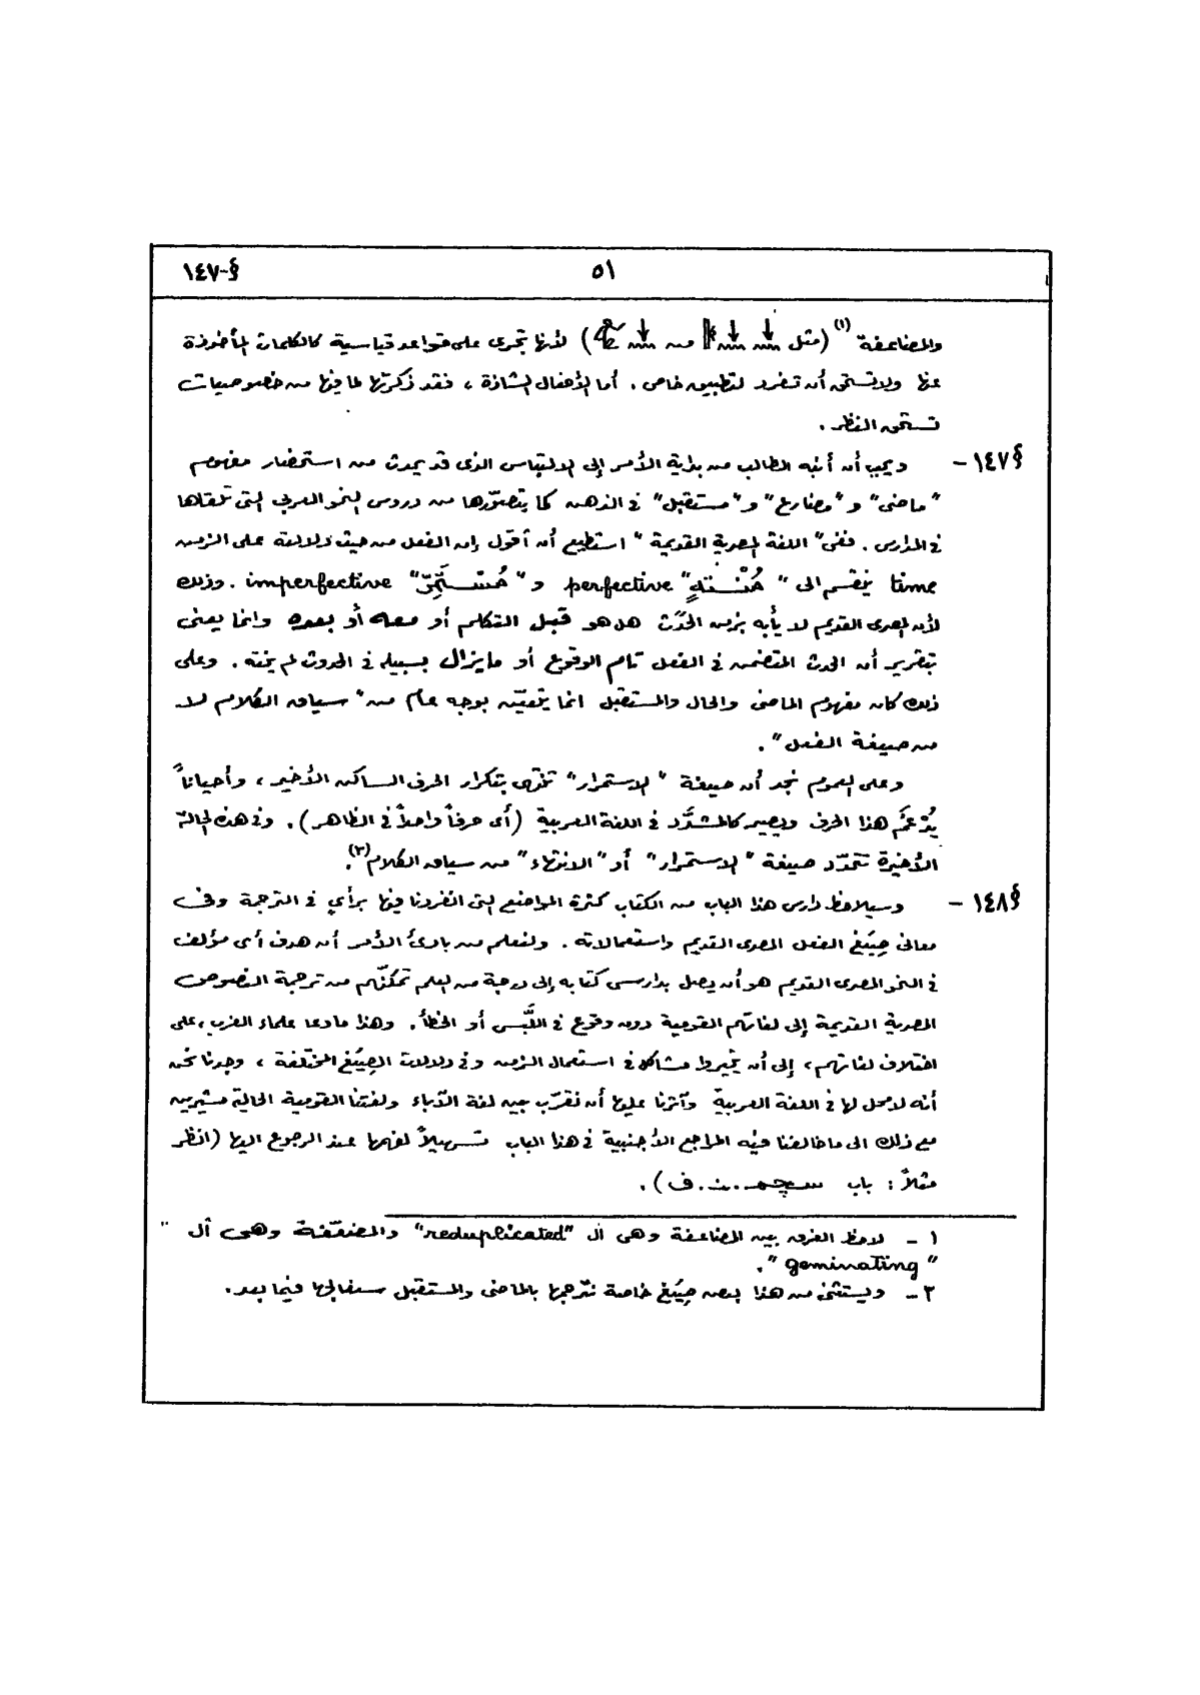 §-١٤٧
٥١
والمضاعفة (١) (مثل من) لأنها تجرى على قواعد قياسية كالكلمات المأخوذة
عنها ولا تستحق أن تفرد لتطبيق خاص. أما الأفعال الشاذة، فقد ذكرتها لما فيها من خصوصيات
تستحق النظر.
§١٤٧- ويجب أن أنبه الطالب من بداية الأمر إلى الالتباس الذى قد يحدث من استحضار مفهوم
"ماضى" و "مضارع" و "مستقبل" فى الذهن كما يتصورها من دروس النحو العربي التى تلقاها
فى المدارس. ففى "اللغة المصرية القديمة" استطيع أن أقول إن الفعل من حيث دلالته على الزمن
time ينقسم الى " " perfective و " " imperfective. وذلك
لأن المصرى القديم لا يأبه بزمن الحَدَث هل هو قبل التكلم أو معه أو بعده وانما يعنى
بتقرير أن الحدث المتضمن فى الفعل تام الوقوع أو مايزال بسبيله فى الحدوث لم ينته. وعلى
ذلك كان مفهوم الماضى والحال والمستقبل انما يتعيّن بوجه عام من "سياق الكلام لا
من صيغة الفعل".
وعلى العموم نجد أن صيغة "الاستمرار" تختص بتكرار الحرف الساكن الأخير، وأحياناً
يُدْغَم هذا الحرف ويصير كالمشدَّد فى اللغة العربية (أى حرفاً واحداً فى الظاهر). وفى هذه الحالة
الأخيرة تتحدّد صيغة "الاستمرار" أو "الانتهاء" من سياق الكلام(٢).
§١٤٨- وسيلاحظ دارس هذا الباب من الكتاب كثرة المواضع التى انفردنا فيها برأي فى الترجمة وفى
معانى صِيَغ الفعل المصرى القديم واستعمالاته. ولنعلم من بادئ الأمر أن هدف أى مؤلف
فى النحو المصرى القديم هو أن يصل بدارسى كتابه إلى درجة من العلم تمكنّهم من ترجمة النصوص
المصرية القديمة إلى لغاتهم القومية دون وقوع فى اللَّبْس أو الخطأ. وهذا مادعا علماء الغرب، على
اختلاف لغاتهم، إلى أن يثيروا مشاكل فى استعمال الزمن وفى دلالات الصِيَغ المختلفة، وجدنا نحن
أنه لامحل لها فى اللغة العربية وآثرنا عليها أن نقرّب بين لغة الآباء ولغتنا القومية الحالية مشيرين
مع ذلك الى ماخالفنا فيه المراجع الأجنبية فى هذا الباب تسهيلاً لفهمها عند الرجوع اليها (انظر
مثلاً: باب سچم.ن.ف).
١ - لاحظ الفرق بين المضاعفة وهى ال "reduplicated" والمضعّفة وهى ال "
"geminating".
٢ - ويستثنى من هذا بعض صِيَغ خاصة نترجمها بالماضى والمستقبل سنعالجها فيما بعد.